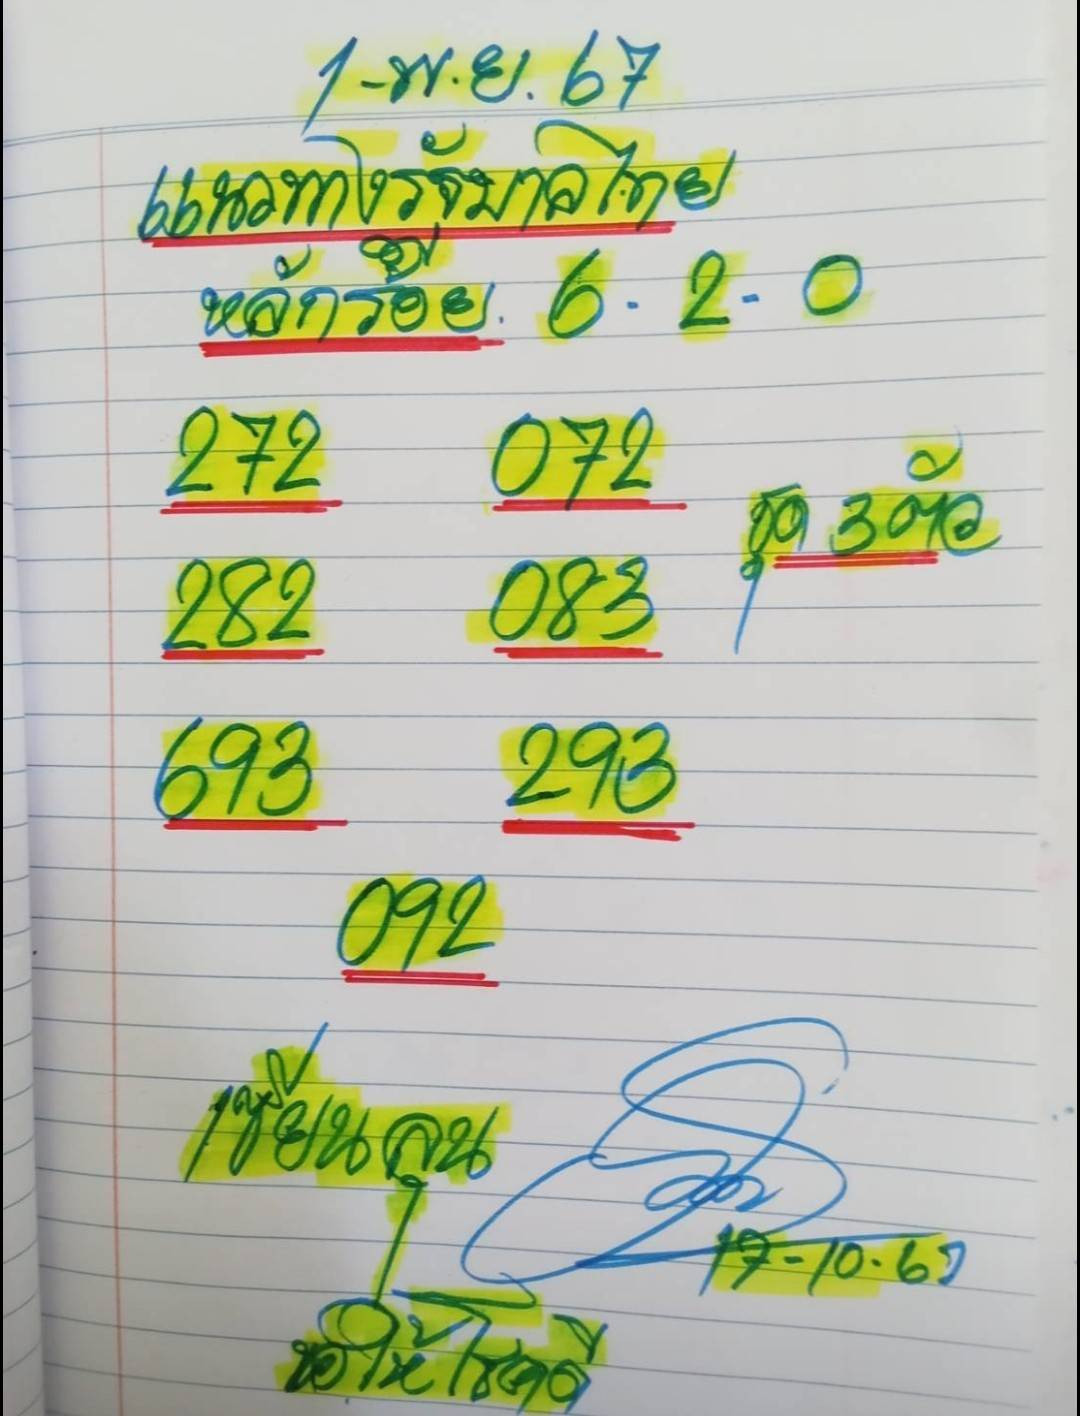 1-พ.ย. 67
แนวทางรัฐบาลไทย
หลักร้อย. 6-2-0
272 072
ชุด 3 ตัว
282 083
693 293
092
เซียนลุน
17-10-67
ขอให้โชคดี